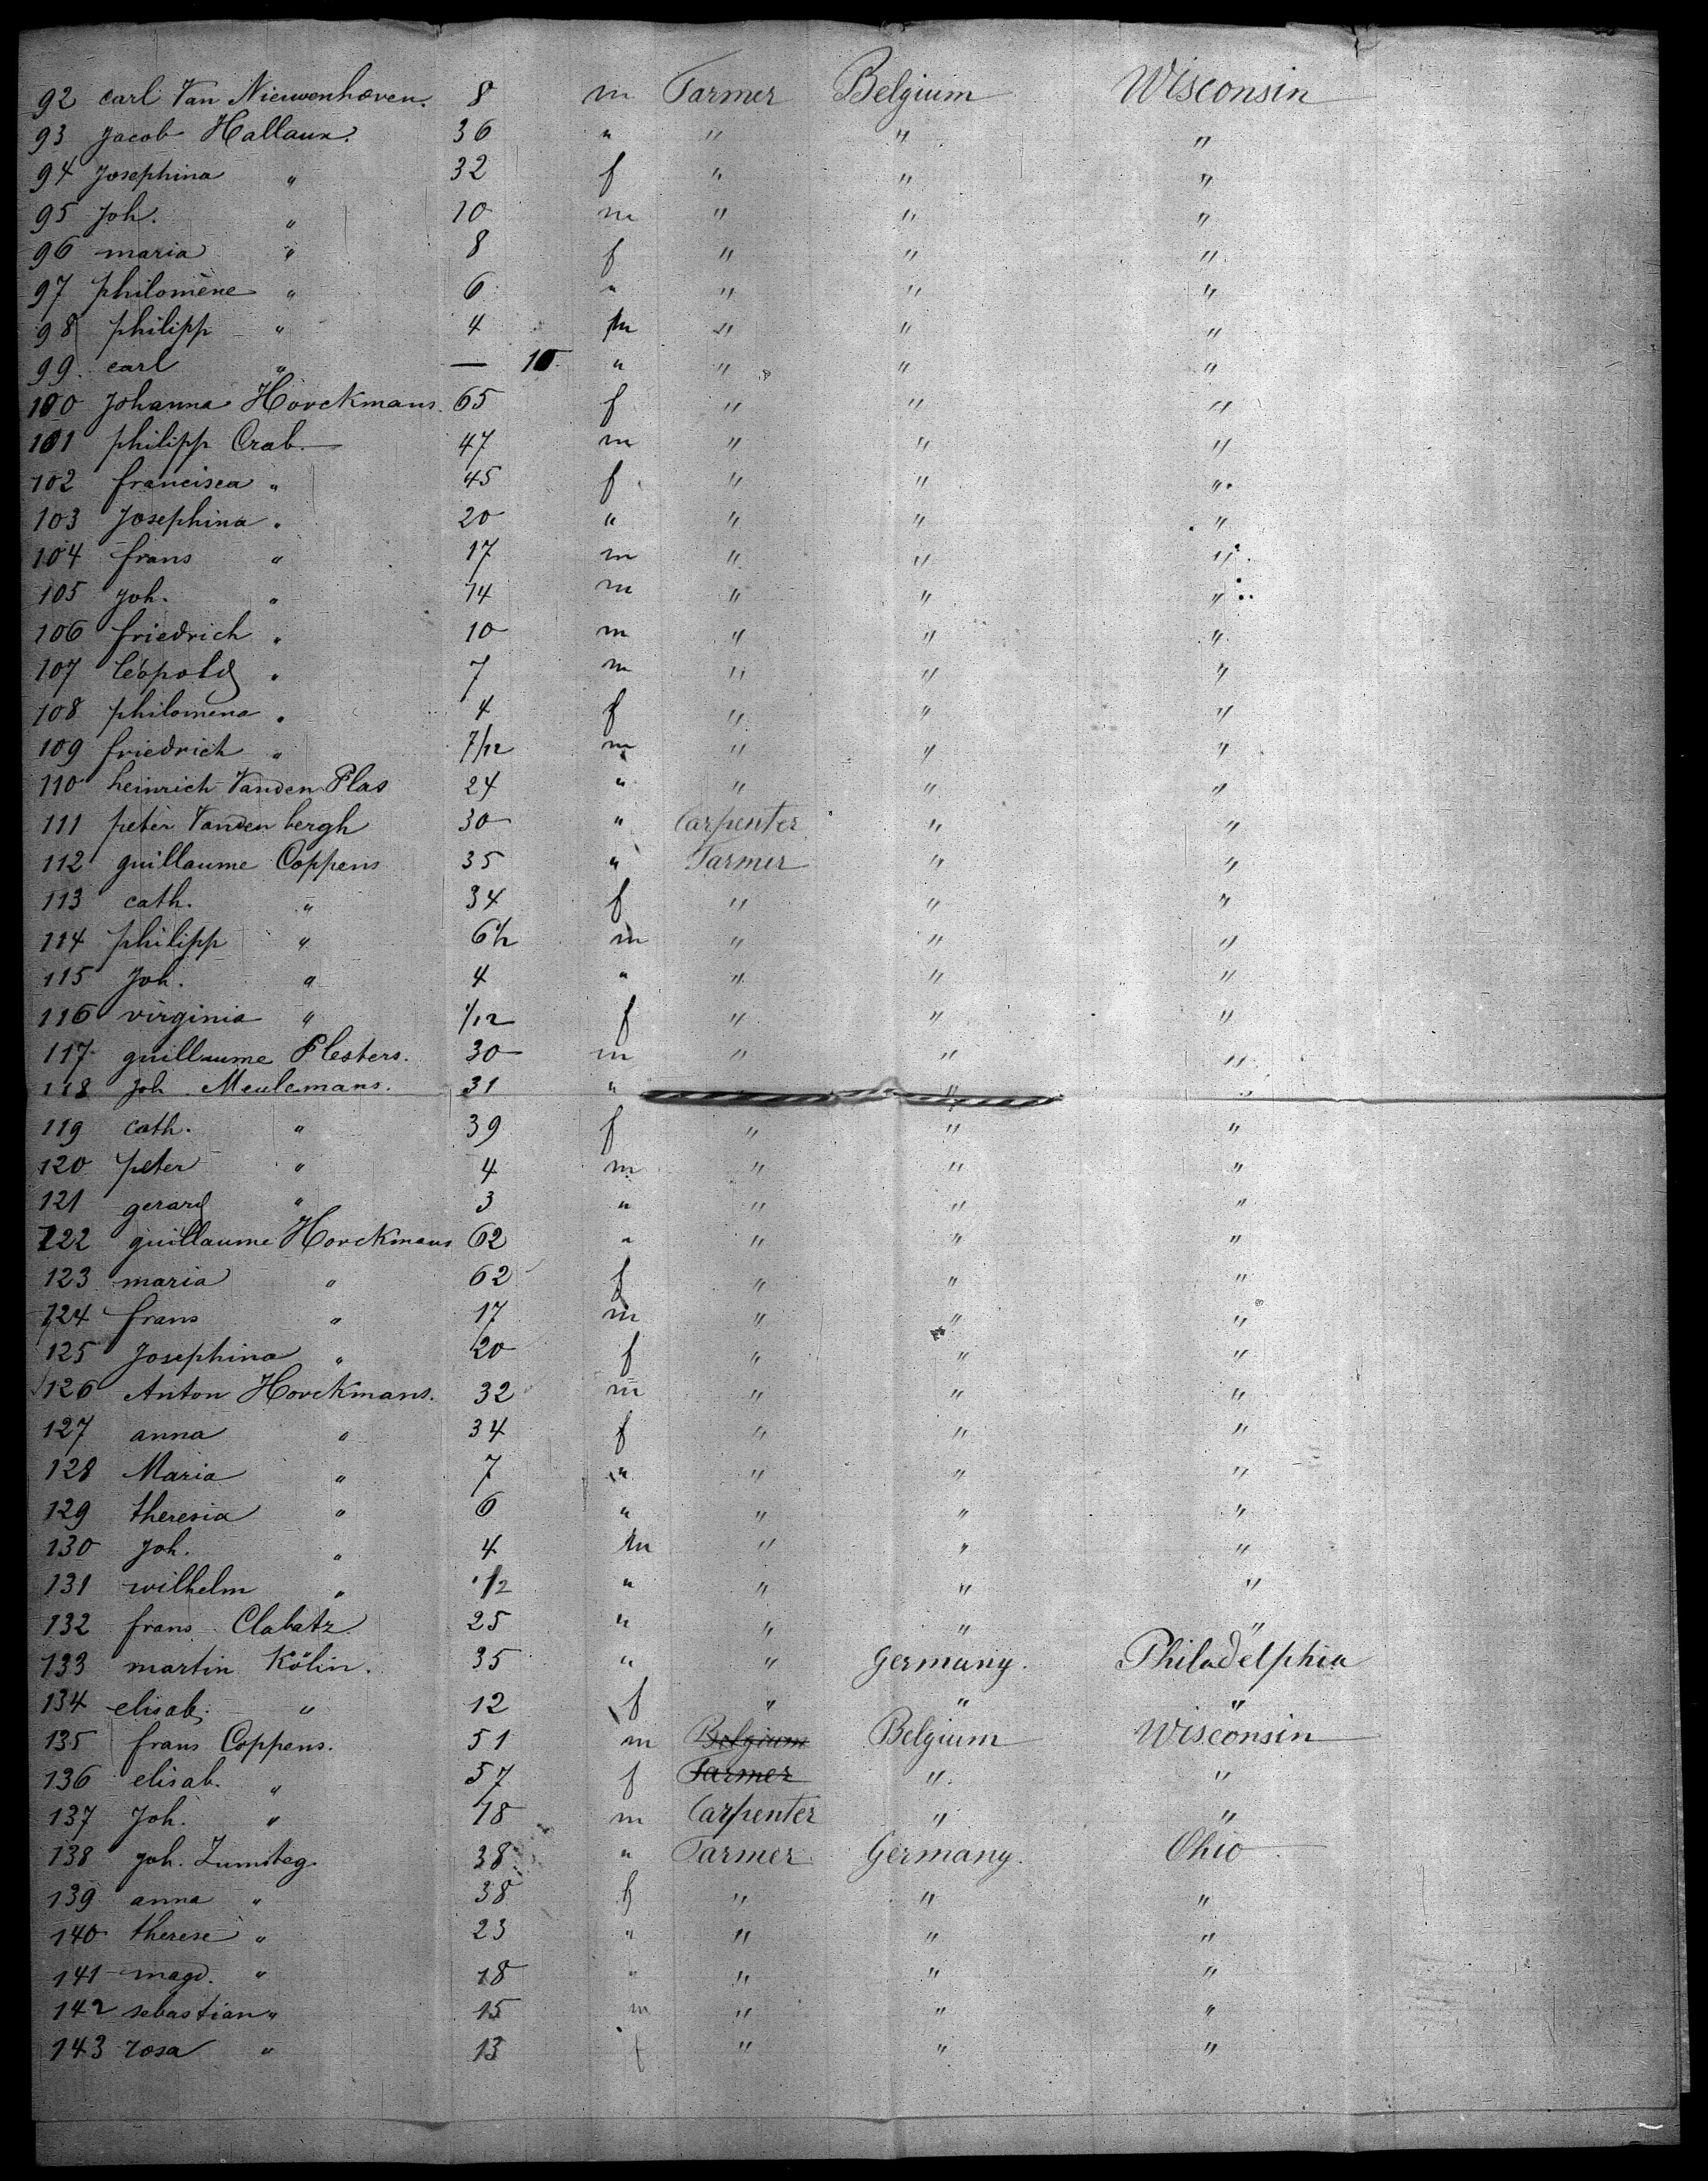 92 carl Van Nieuwenhoeven. 8 m Farmer Belgium Wisconsin
93 Jacob Hallaux. 36 " " " "
94 Josephina " 32 f " " "
95 Joh. " 10 m " " "
96 maria " 8 f " " "
97 philomène " 6 " " " "
98 philipp " 4 m " " "
99. carl " — 10 " " " "
100 Johanna Horckmans. 65 f " " "
101 philipp Crab. 47 m " " "
102 francisca " 45 f " " "
103 Josephina " 20 " " " "
104 frans " 17 m " " "
105 Joh. " 14 m " " "
106 friedrich " 10 m " " "
107 léopold " 7 m " " "
108 philomena " 4 f " " "
109 friedrich " 7/12 m " " "
110 heinrich Vanden Plas 24 " " " "
111 peter Vanden bergh 30 " Carpenter " "
112 guillaume Coppens 35 " Farmer " "
113 cath. " 34 f " " "
114 philipp " 6 1/2 m " " "
115 Joh. " 4 " " " "
116 virginia " 1/12 f " " "
117 guillaume Plesters. 30 m " " "
118 Joh. Meulemans. 31 " " "
119 cath. " 39 f " " "
120 peter " 4 m " " "
121 gerard " 3 " " " "
122 guillaume Horckmans 62 " " " "
123 maria " 62 f " " "
124 frans " 17 m " " "
125 Josephina " 20 f " " "
126 Anton Horckmans. 32 m " " "
127 anna " 34 f " " "
128 Maria " 7 " " " "
129 theresia " 6 " " " "
130 Joh. " 4 m " " "
131 wilhelm " 1/2 " " " "
132 frans Clabatz 25 " " " "
133 martin Kölin. 35 " " Germany. Philadelphia
134 elisab. " 12 f " " "
135 frans Coppens. 51 m Belgium Belgium Wisconsin
136 elisab. " 57 f Farmer " "
137 Joh. " 18 m Carpenter " "
138 Joh. Zumsteg. 38 " Farmer Germany. Ohio
139 anna " 38 f " " "
140 therese " 23 " " " "
141 magd. " 18 " " " "
142 sebastian " 15 m " " "
143 rosa " 13 f " " "